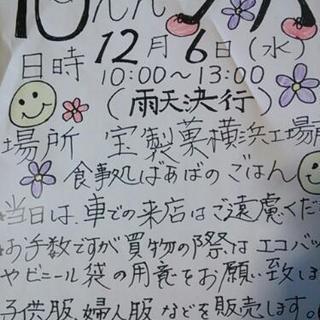 12月6日(水)
日時 10:00～13:00
(雨天決行)
場所 宝製菓横浜工場
食事処ばあばのごはん
当日は、車での来店はご遠慮くだ
お手数ですが買物の際はエコバッ
やビニール袋の用意をお願い致しま
子供服、婦人服などを販売します。